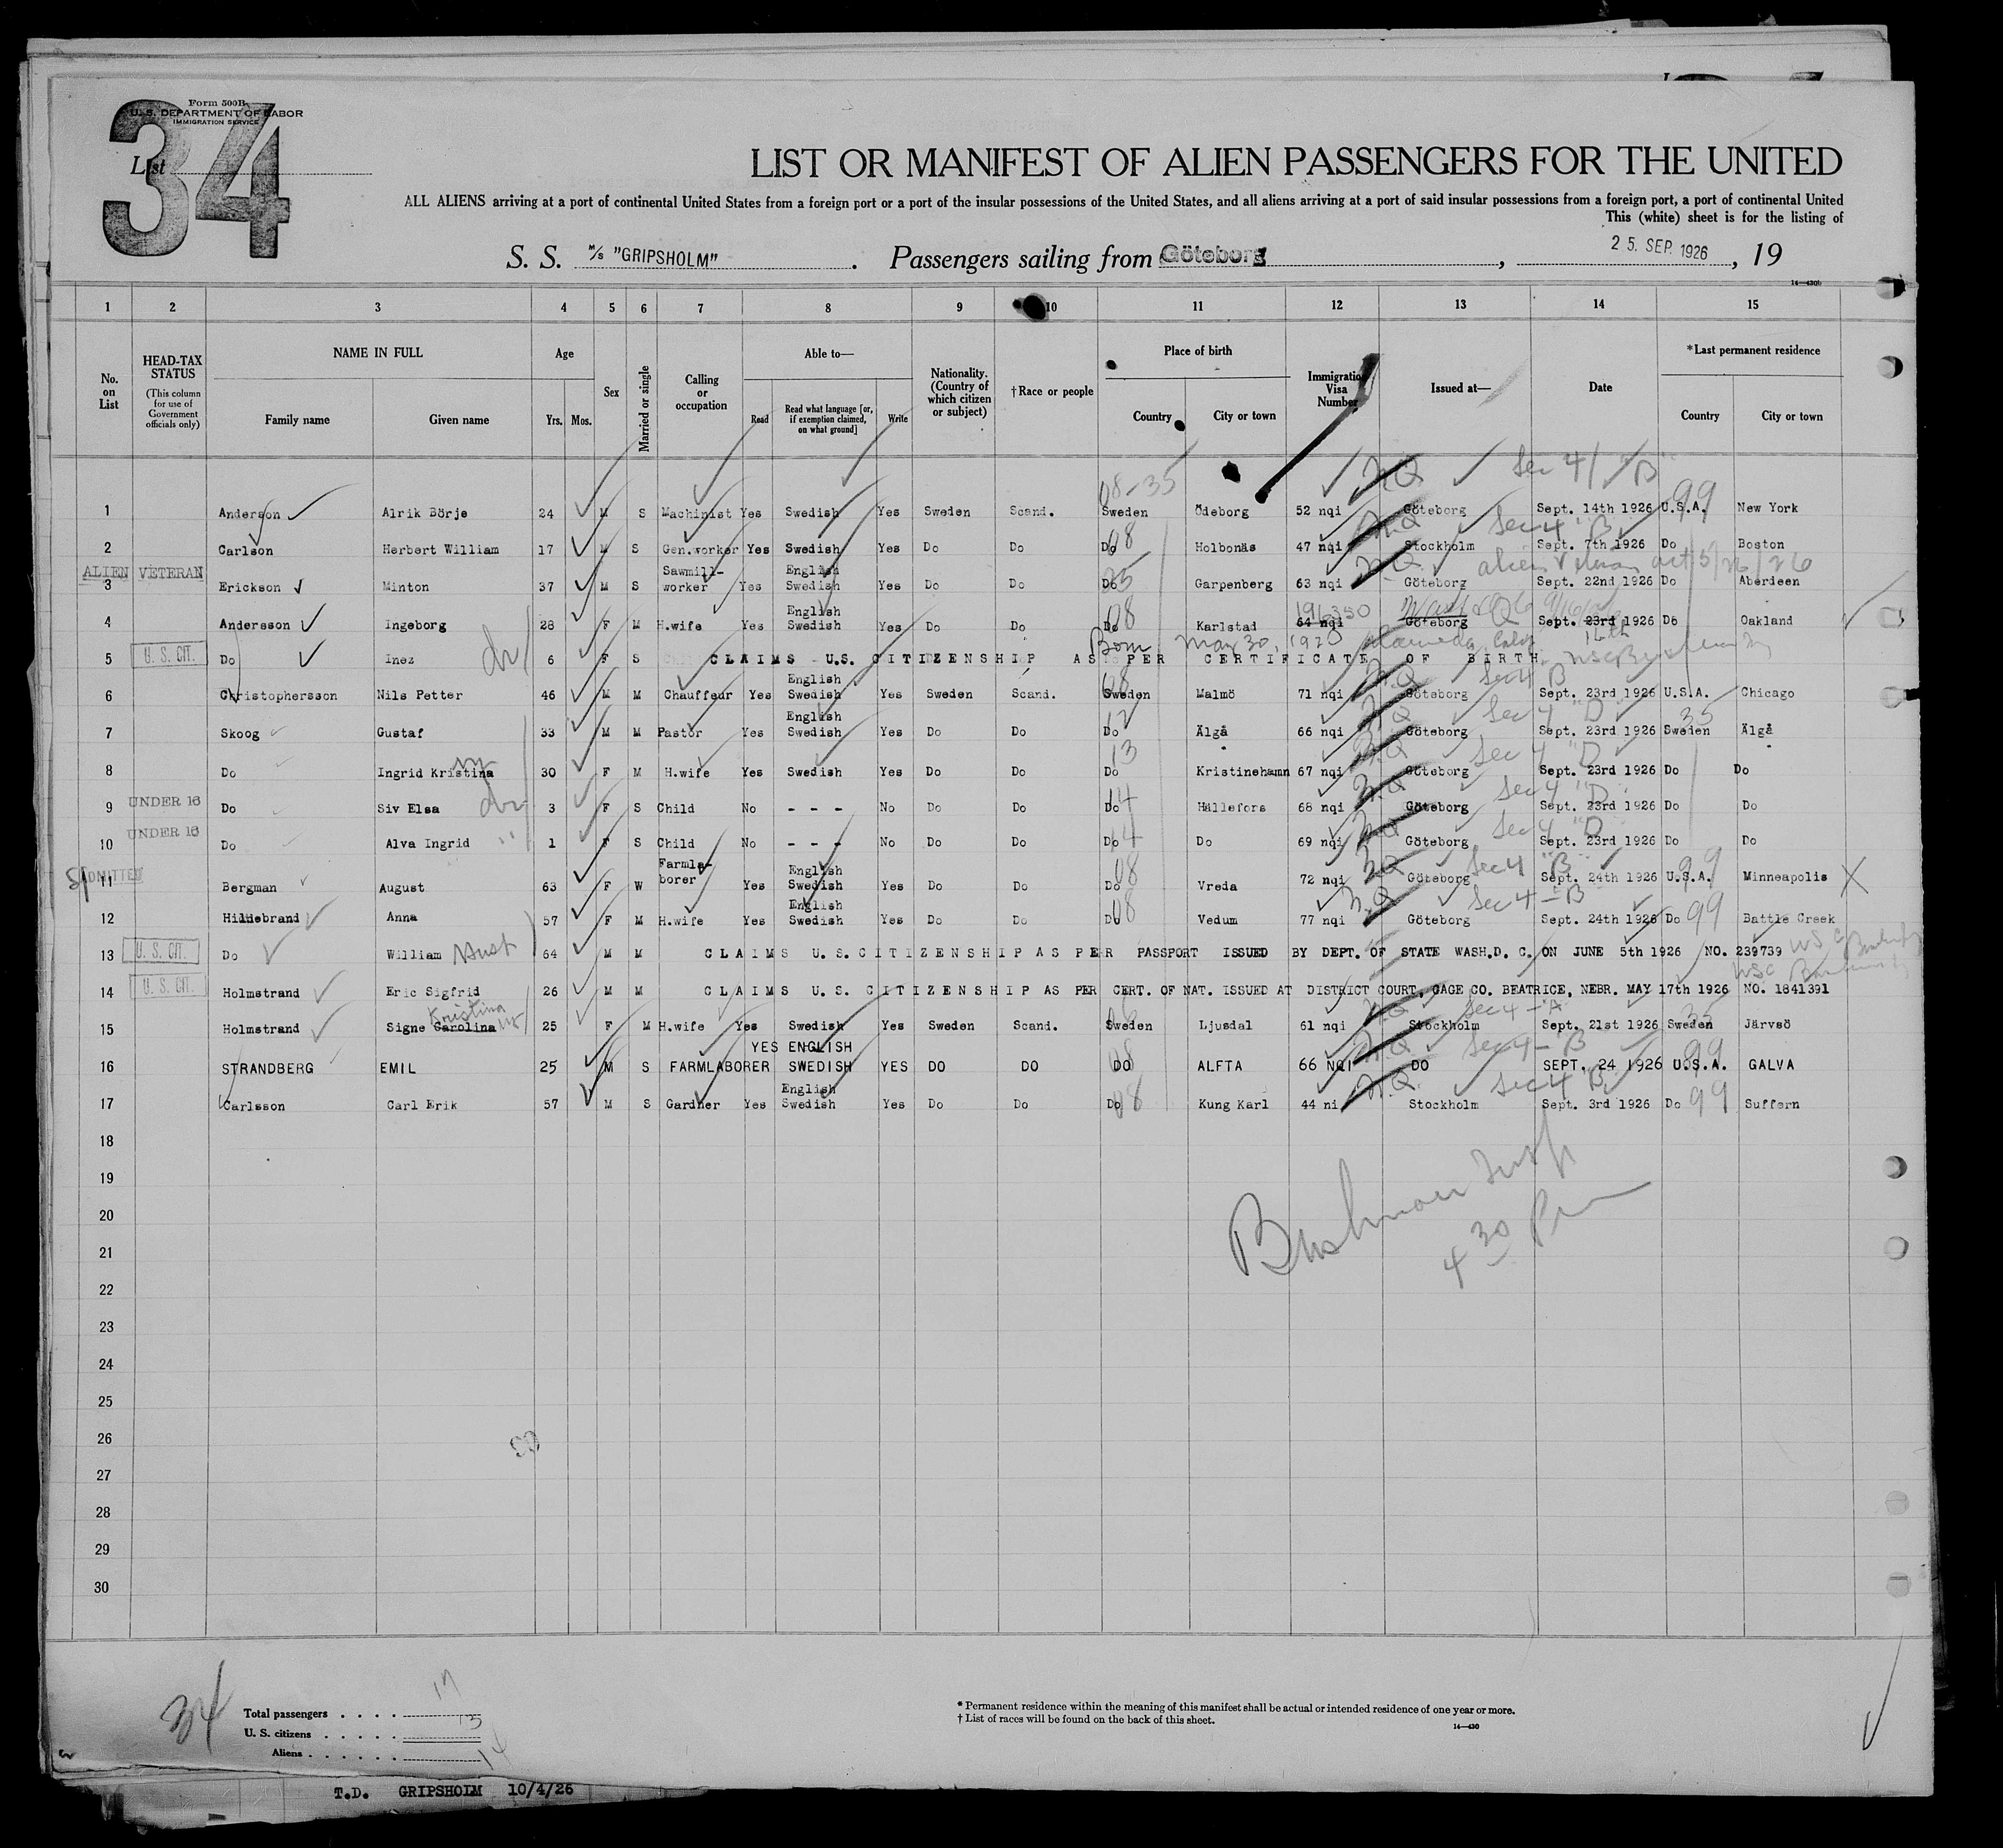 34
Form 500B
U. S. DEPARTMENT OF LABOR
IMMIGRATION SERVICE
List
LIST OR MANIFEST OF ALIEN PASSENGERS FOR THE UNITED
ALL ALIENS arriving at a port of continental United States from a foreign port or a port of the insular possessions of the United States, and all aliens arriving at a port of said insular possessions from a foreign port, a port of continental United
This (white) sheet is for the listing of
S. S. M/s "GRIPSHOLM". Passengers sailing from Göteborg, 25. SEP. 1926, 19
1 2 3 4 5 6 7 8 9 10 11 12 13 14 15
No. on List
HEAD-TAX STATUS
(This column for use of Government officials only)
NAME IN FULL
Family name Given name
Age
Yrs. Mos.
Sex
Married or single
Calling or occupation
Able to—
Read Read what language [or, if exemption claimed, on what ground] Write
Nationality. (Country of which citizen or subject)
†Race or people
Place of birth
Country City or town
Immigration Visa Number
Issued at—
Date
*Last permanent residence
Country City or town
08-35 N.Q. Sec 4 "B"
1 Anderson Alrik Börje 24 M S Machinist Yes Swedish Yes Sweden Scand. Sweden Ödeborg 52 nqi Göteborg Sept. 14th 1926 U.S.A. 99 New York
N.Q. Sec 4 "B"
2 Carlson Herbert William 17 M S Gen.worker Yes Swedish Yes Do Do Do 08 Holbonäs 47 nqi Stockholm Sept. 7th 1926 Do Boston
ALIEN VETERAN
3 Erickson Minton 37 M S Sawmill-worker Yes English Swedish Yes Do Do Do 35 Garpenberg 63 nqi Göteborg Sept. 22nd 1926 Do Aberdeen
4 Andersson Ingeborg 28 F M H.wife Yes English Swedish Yes Do Do Do 08 Karlstad 64 nqi Göteborg Sept. 23rd 1926 Do Oakland
Born May 30, 1920 Alameda Calif
U. S. CIT.
5 Do Inez 6 F S CLAIMS U.S. CITIZENSHIP AS PER CERTIFICATE OF BIRTH.
N.Q. Sec 4 B
6 Christophersson Nils Petter 46 M M Chauffeur Yes English Swedish Yes Sweden Scand. Sweden 08 Malmö 71 nqi Göteborg Sept. 23rd 1926 U.S.A. Chicago
N.Q. Sec 4 "D"
7 Skoog Gustaf 33 M M Pastor Yes English Swedish Yes Do Do Do 12 Älgå 66 nqi Göteborg Sept. 23rd 1926 Sweden 35 Älgå
N.Q. Sec 4 "D"
8 Do Ingrid Kristina 30 F M H.wife Yes Swedish Yes Do Do Do 13 Kristinehamn 67 nqi Göteborg Sept. 23rd 1926 Do Do
N.Q. Sec 4 "D"
UNDER 16
9 Do Siv Elsa 3 F S Child No - - - No Do Do Do 14 Hällefors 68 nqi Göteborg Sept. 23rd 1926 Do Do
N.Q. Sec 4 "D"
UNDER 16
10 Do Alva Ingrid 1 F S Child No - - - No Do Do Do 14 Do 69 nqi Göteborg Sept. 23rd 1926 Do Do
N.Q. Sec 4 "B"
ADMITTED
11 Bergman August 63 F W Farmla-borer Yes English Swedish Yes Do Do Do 08 Vreda 72 nqi Göteborg Sept. 24th 1926 U.S.A. 99 Minneapolis X
N.Q. Sec 4 - B
12 Hildebrand Anna 57 F M H.wife Yes English Swedish Yes Do Do Do 08 Vedum 77 nqi Göteborg Sept. 24th 1926 Do 99 Battle Creek
U. S. CIT.
13 Do William Husb 64 M M CLAIMS U.S.CITIZENSHIP AS PER PASSPORT ISSUED BY DEPT. OF STATE WASH.D. C. ON JUNE 5th 1926 NO. 239739
U. S. CIT.
14 Holmstrand Eric Sigfrid 26 M M CLAIMS U.S. CITIZENSHIP AS PER CERT. OF NAT. ISSUED AT DISTRICT COURT, GAGE CO. BEATRICE, NEBR. MAY 17th 1926 NO. 1841391
Kristina N.Q. Sec 4 - "A"
15 Holmstrand Signe Carolina 25 F M H.wife Yes Swedish Yes Sweden Scand. Sweden Ljusdal 61 nqi Stockholm Sept. 21st 1926 Sweden 35 Järvsö
N.Q. Sec 4 - B
16 STRANDBERG EMIL 25 M S FARMLABORER YES ENGLISH SWEDISH YES DO DO DO 08 ALFTA 66 NQI DO SEPT. 24 1926 U.S.A. 99 GALVA
N.Q. Sec 4 B
17 Carlsson Carl Erik 57 M S Gardner Yes English Swedish Yes Do Do Do 08 Kung Karl 44 ni Stockholm Sept. 3rd 1926 Do 99 Suffern
18
19
20
21
22
23
24
25
26
27
28
29
30
4 30 Pm
34
Total passengers . . . . 17
U. S. citizens . . . . .
Aliens . . . . . . 14
* Permanent residence within the meaning of this manifest shall be actual or intended residence of one year or more.
† List of races will be found on the back of this sheet.
T.D. GRIPSHOLM 10/4/26